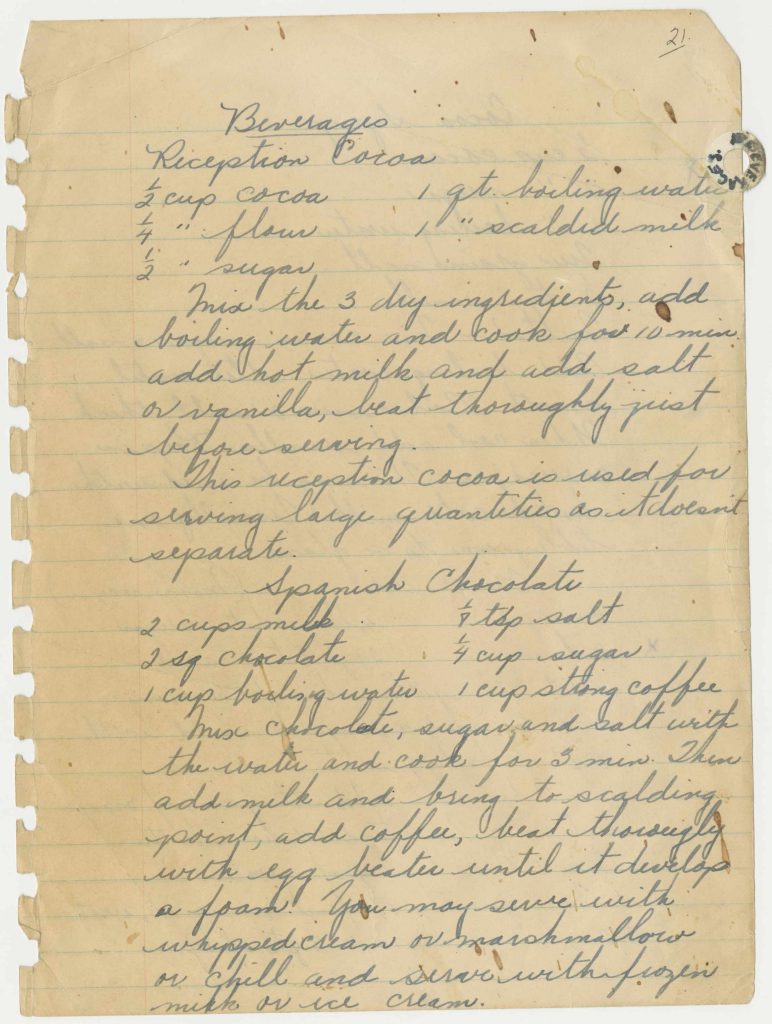 21.
Beverages
BEVERAGES
Reception Cocoa
1/2 cup cocoa 1 qt. boiling water
1/4 " flour 1 " scalded milk
1/2 " sugar
Mix the 3 dry ingredients, add
boiling water and cook for 10 min.
add hot milk and add salt
or vanilla, beat thoroughly just
before serving.
This reception cocoa is used for
serving large quantities as it doesn't
separate.
Spanish Chocolate
2 cups milk 1/8 tsp salt
2 sq chocolate 1/4 cup sugar
1 cup boiling water 1 cup strong coffee
Mix chocolate, sugar, and salt with
the water and cook for 3 min. Then
add milk and bring to scalding
point, add coffee, beat thorougly
with egg beater until it develop
a foam. You may serve with
whipped cream or marshmallow
or chill and serve with frozen
milk or ice cream.